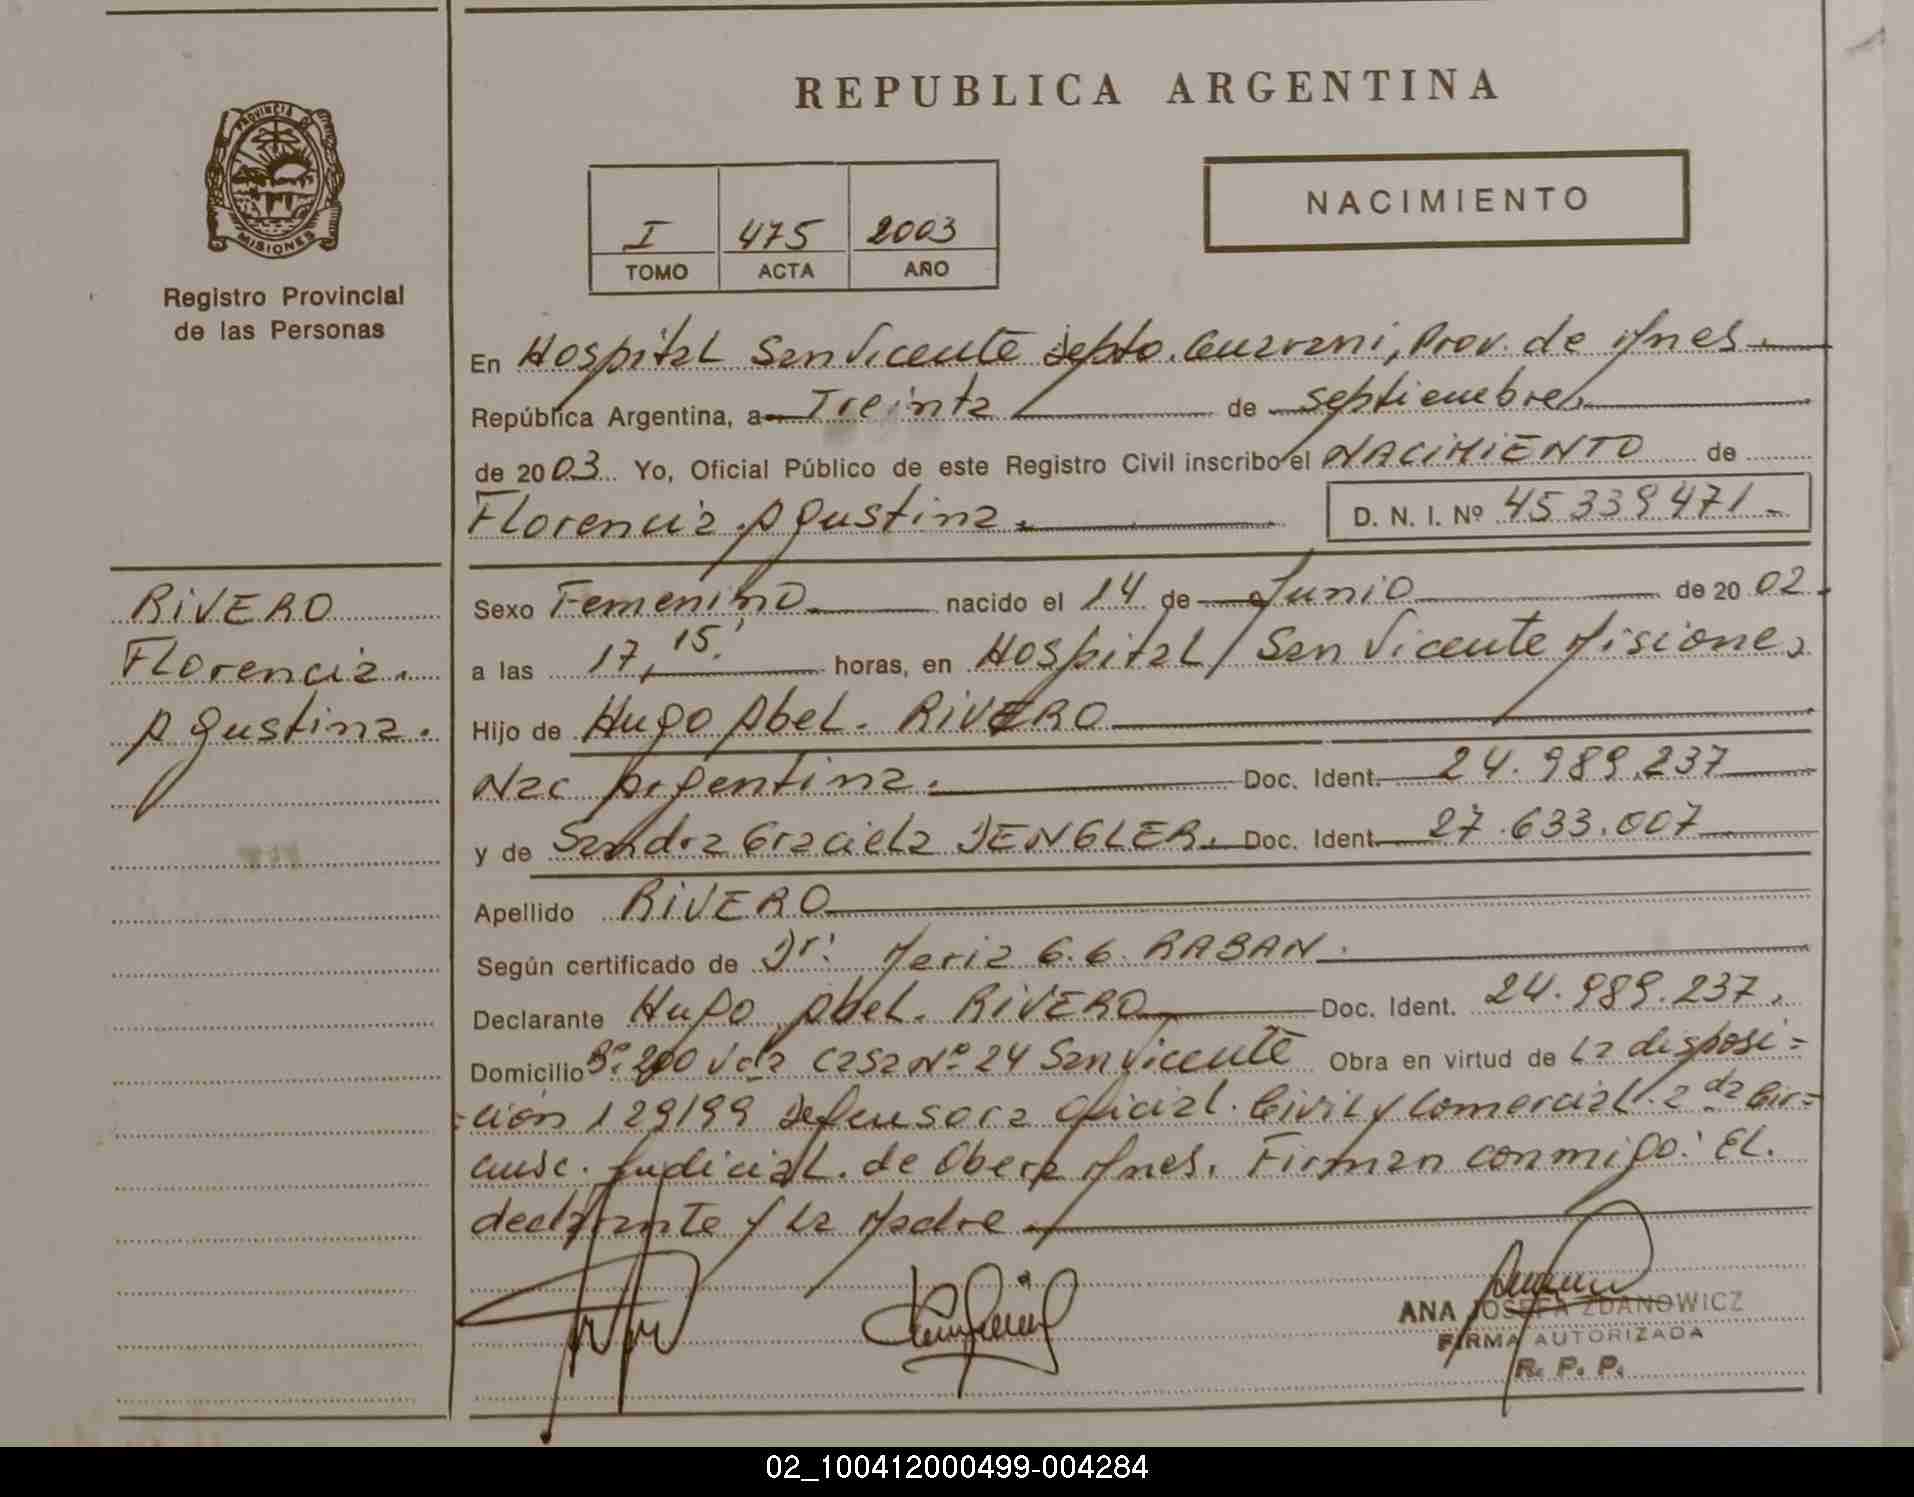 REPUBLICA ARGENTINA
PROVINCIA DE
MISIONES
Registro Provincial
de las Personas
I 475 2003
TOMO ACTA AÑO
NACIMIENTO
En Hospital San Vicente Depto. Guarani, Prov. de Mnes.
República Argentina, a Treinta de septiembre
de 2003. Yo, Oficial Público de este Registro Civil inscribo el NACIMIENTO de
Florencia Agustina. D. N. I. Nº 45339471-
RIVERO
Florencia.
Agustina.
Sexo Femenino nacido el 14 de Junio de 2002.
a las 17,15' horas, en Hospital San Vicente Misiones
Hijo de Hugo Abel. RIVERO
Nac Argentina. Doc. Ident. 24.989.237
y de Sandra Graciela DENGLER. Doc. Ident. 27.633.007
Apellido RIVERO
Según certificado de Dr: Maria G.G. RABAN.
Declarante Hugo Abel. RIVERO Doc. Ident. 24.989.237.
Domicilio Bº 200 Vda Casa Nº 24 San Vicente Obra en virtud de La disposi=
=ción 129/99 Defensora Oficial. Civil y Comercial. 2da Cir=
cunsc. Judicial. de Obera Mnes. Firman conmigo: El.
declarante y La Madre
ANA JOSEFA ZDANOWICZ
FIRMA AUTORIZADA
R. P. P.
02_100412000499-004284